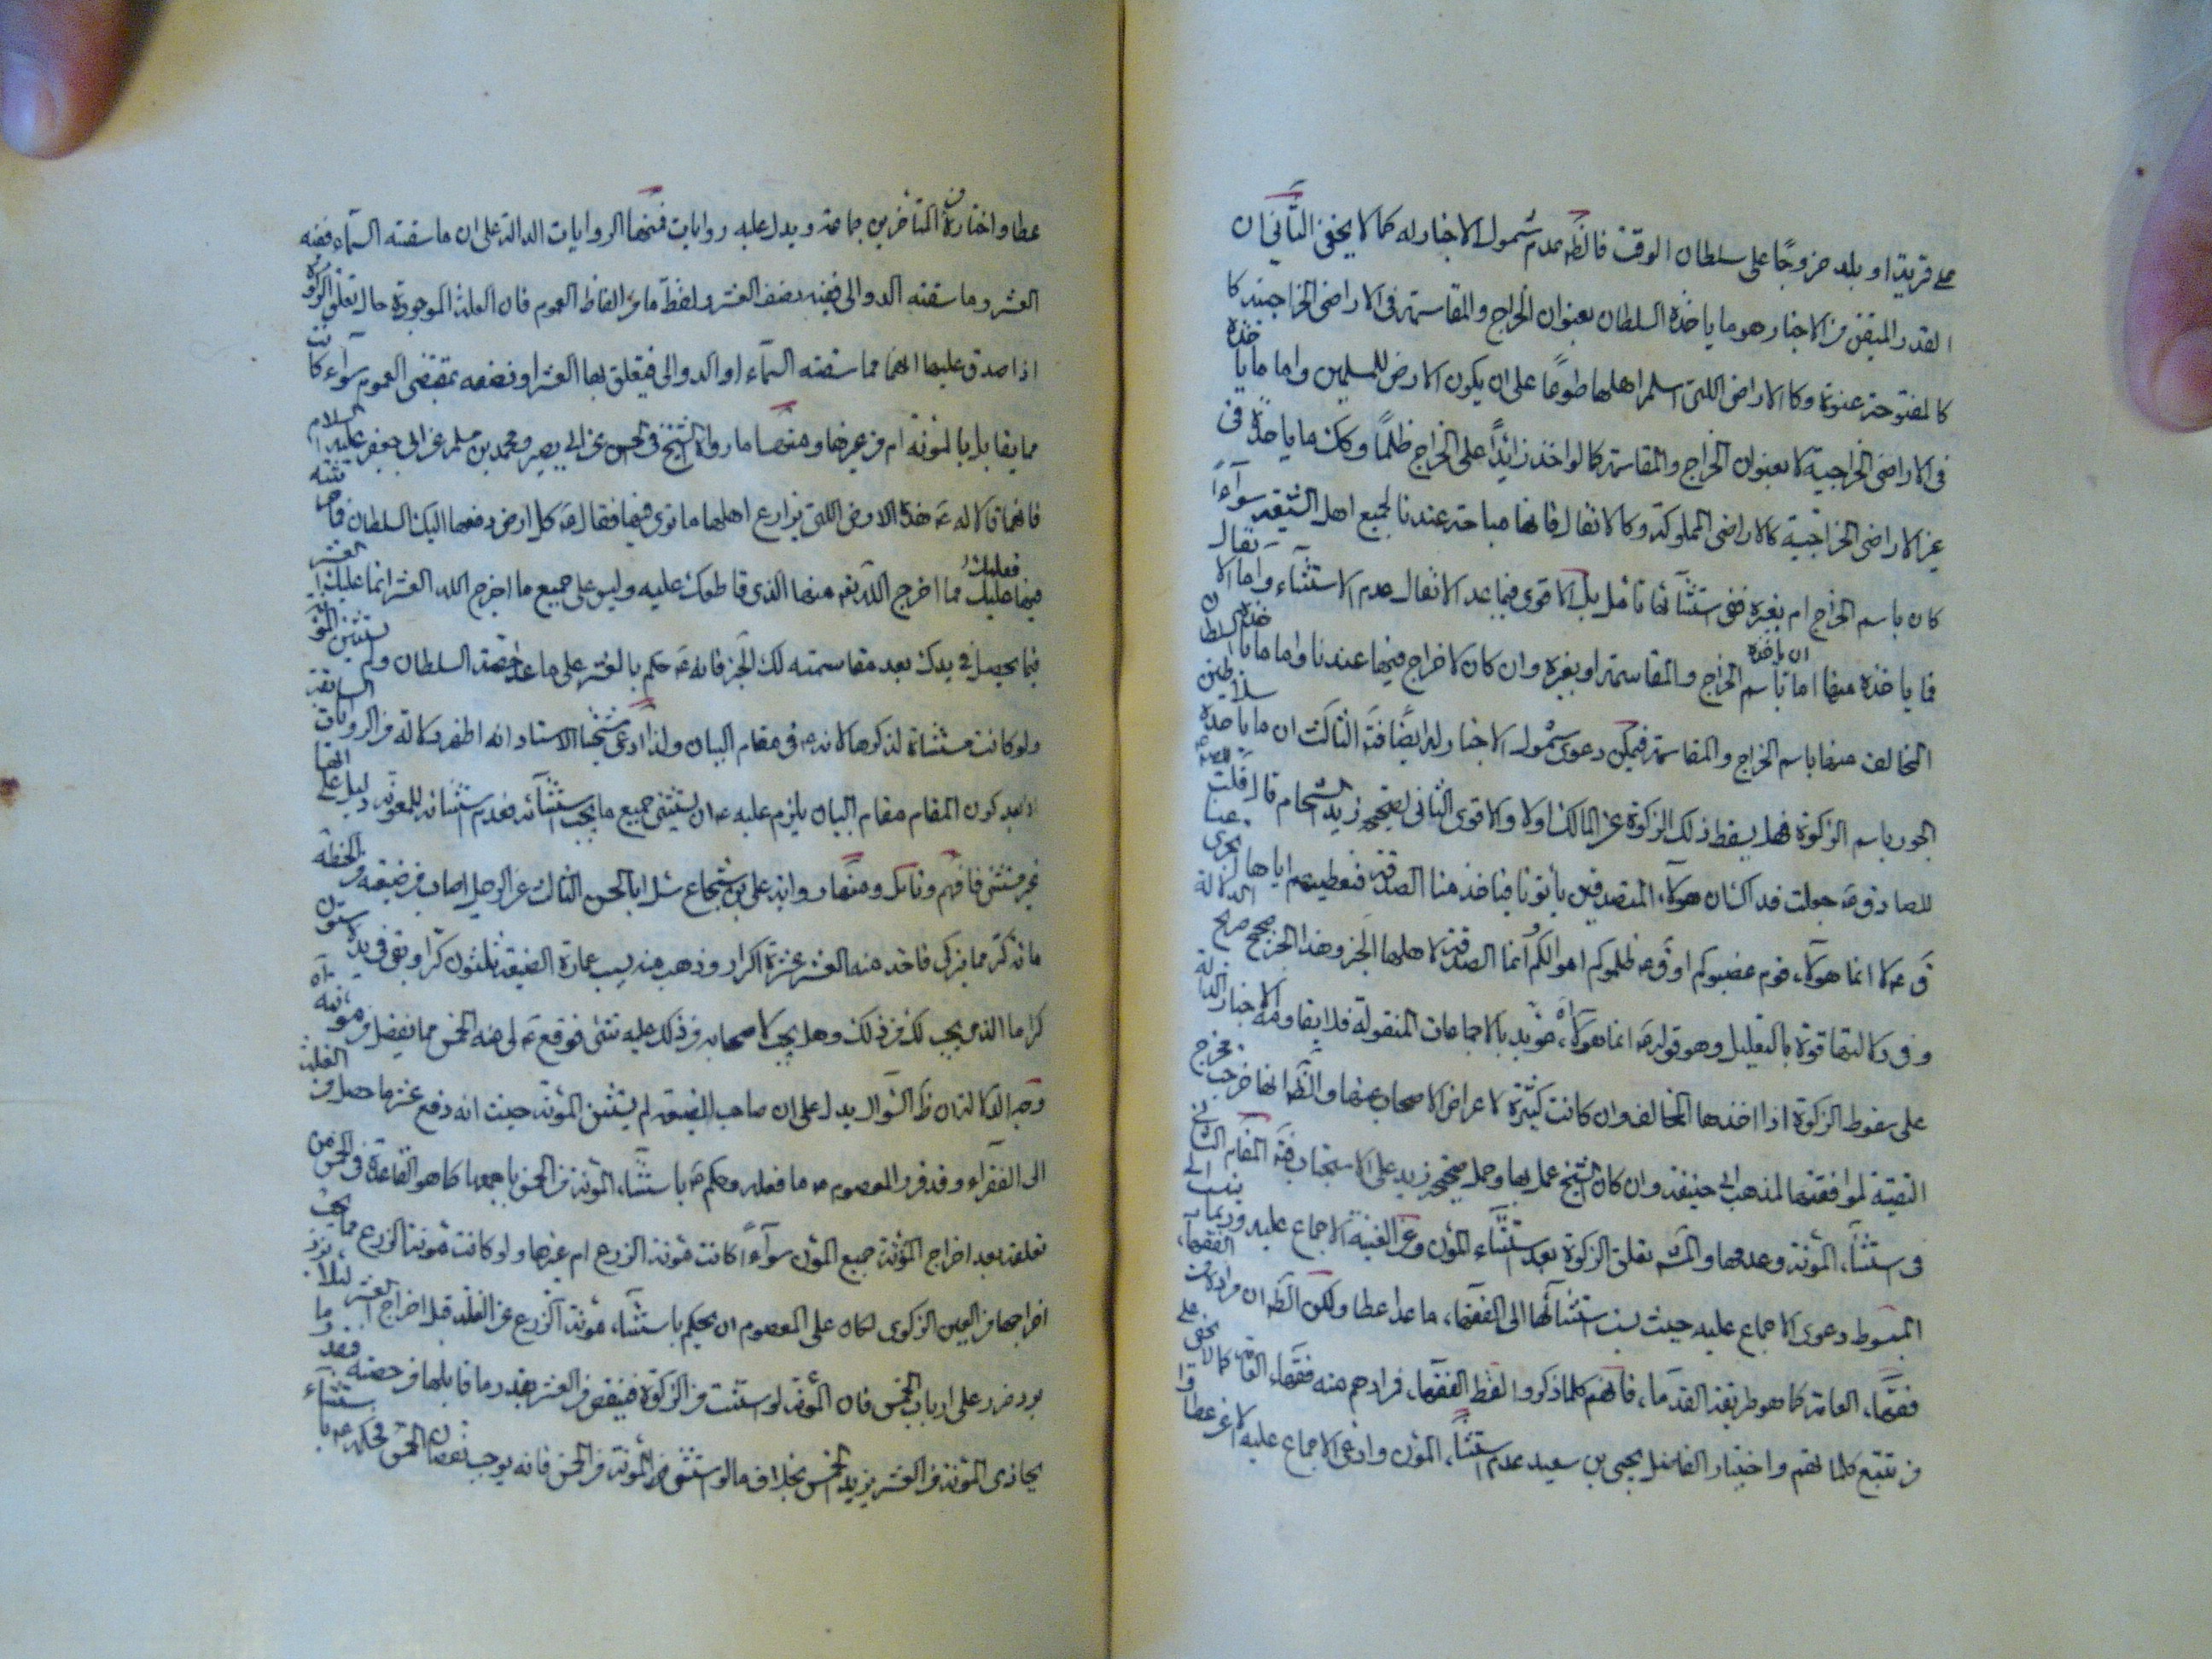 على قرية او بلد خروجًا على سلطان الوقت فالظ عدم شمول الاخبار له كما لا يخفى الثاني ان
القدر المتيقن من الاخبار هو ما ياخذه السلطان بعنوان الخراج والمقاسمة في الاراضي الخراجية كا
كالمفتوحة عنوة وكالاراضى اللتى اسلم اهلها طوعًا على ان يكون الارض للمسلمين واما ما ياخذه
فى الاراضى الخراجية لا بعنوان الخراج والمقاسمة كما لو اخذ زائدًا على الخراج ظلمًا وكك ما ياخذه فى
غير الاراضى الخراجية كالاراضى المملوكة وكالانفال فانها مباحة عندنا لجميع اهل الشيعة سوآءً
كان باسم الخراج ام بغيره ففى استثنائها تأمل بل الاقوى فيما عد الانفال عدم الاستثناء واما الانفال
فما ياخذه منها اما ان ياخذه باسم الخراج والمقاسمة او بغيره وان كان لا خراج فيها عندنا واما ما ياخذه السلطان
المخالف منها باسم الخراج والمقاسمة فيمكن دعوى شمول الاخبار له ايضًا فتَ الثالث ان ما ياخذه سلاطين
الجور باسم الزكوة فهل يسقط ذلك الزكوة عن المالك اولا والاقوى الثاني لصحيحة زيد الشحام قال قلت
للصادق ع جعلت فداك ان هولآء المتصدقين يأتونا فياخذ منا الصدقة فنعطيهم اياها ايجزى عنا
ق ع لا انما هولآء قوم غصبوكم او ق ع ظلموكم اموالكم وانما الصدقة لاهلها الخبر وهذا الخبر صحيح صريح الدلالة
وفى دلالتها قوة بالتعليل وهو قوله ع انما هولآء اه مؤيد بالاجماعات المنقولة فلا يقاومه الاخبار الدالة
على سقوط الزكوة اذا اخذها المخالف وان كانت كثيرة لاعراض الاصحاب عنها والظ انها خرجت مخرج
التقية لموافقتها لمذهب ابى حنيفة وان كان الشيخ عمل بها وحمل صحيحة زيد على الاستحباب فتَ المقام الثاني
فى استثناء المؤنة وعدمها والمش تعلق الزكوة بعد استثناء المؤن وعن الغنية الاجماع عليه وربما ينسب الى
المبسوط دعوى الاجماع عليه حيث نسب استثنائها الى الفقهاء ما عدا عطا ولكن الظ ان مراده من الفقهاء
فقهاء العامة كما هو طريقة القدماء فانهم كلما ذكروا لفظ الفقهاء فمرادهم منه فقهاء العامة كما لا يخفى على
من تتبع كلماتهم واختيار الفاضل يحيى بن سعيد عدم استثناء المؤن وادعى الاجماع عليه الا عن عطا و
عطا واختاره من المتأخرين جماعة ويدل عليه روايات فمنها الروايات الدالة على ان ما سقته السماء ففيه
العشر وما سقته الدوالى ففيه نصف العشر ولفظ ما من الفاظ العموم فان الغلة الموجودة حال تعلق الزكوة
اذا صدق عليها انها مما سقته السمآء او الدوالى فيتعلق بها العشر او نصفه بمقتضى العموم سوآء كانت
مما يقابل بالمؤنة ام من غيرها ومنها ما رواه الشيخ فى الحسن عن ابى بصير ومحمد بن مسلم عن ابى جعفر عليه السلام
فانهما قالا له ع هذه الارض اللتى يزارع اهلها ما ترى فيها فقال ع كل ارض دفعها اليك السلطان فما حرثته
فيها فعليك مما اخرج الله تع منها الذى قاطعك عليه وليس على جميع ما اخرج الله العشر انما عليك العشر
فيما يحصل فى يدك بعد مقاسمته لك الخبر فانه ع حكم بالعشر على ما عدا حصة السلطان ولم يستثنى المؤنة
ولو كانت مستثناة لذكرها لانه ع فى مقام البيان ولذا ادعى شيخنا الاستاد انه اظهر دلالة من الروايات السابقة
اذ بعد كون المقام مقام البيان يلزم عليه ع ان يستثنى جميع ما يجب استثنائه فعدم استثنائه للمؤنة دليل على انها
غير مستثنى فافهم وتامل ومنها رواية على بن شجاع سئل ابا الحسن الثالث عن الرجل اصاب من ضيعته من الحنطة
مائة كر مما يزكى فاخذ منه العشر عشرة اكرار وذهب منه بسبب عمارة الضيعة ثلثون كرًا وبقى فى يده ستون
كرا ما الذى يجب لك من ذلك وهل يجب لاصحابه من ذلك عليه شئ فوقع ع لى منه الخمس مما يفضل من مؤنته
وجه الدلالة ان ظ السؤال يدل على ان صاحب الضيعة لم يستثنى المؤنة حيث انه دفع عشر ما حصل من الغلة
الى الفقراء وقد قرر المعصوم ع ما فعله وحكم ع باستثناء المؤنة من الخمس باجمعها كما هو القاعدة فى الخمس من
تعلقه بعد اخراج المؤنة جميع المؤن سوآءً كانت مؤنة الزرع ام غيرها ولو كانت مؤنة الزرع مما يجب
اخراجها من العين الزكوى لكان على المعصوم ان يحكم باستثناء مؤنة الزرع عن الغلة قبل اخراج العشر لئلا
يرد ضرر على ارباب الخمس فان المؤنة لو استثنت من الزكوة فينقص من العشر بقدر ما قابلها من حصته
يحاذى المؤنة من العشر يزيد الخمس بخلاف ما لو استثنى المؤنة من الخمس فانه يوجب نقصان الخمس فحكمه ع باستثناء